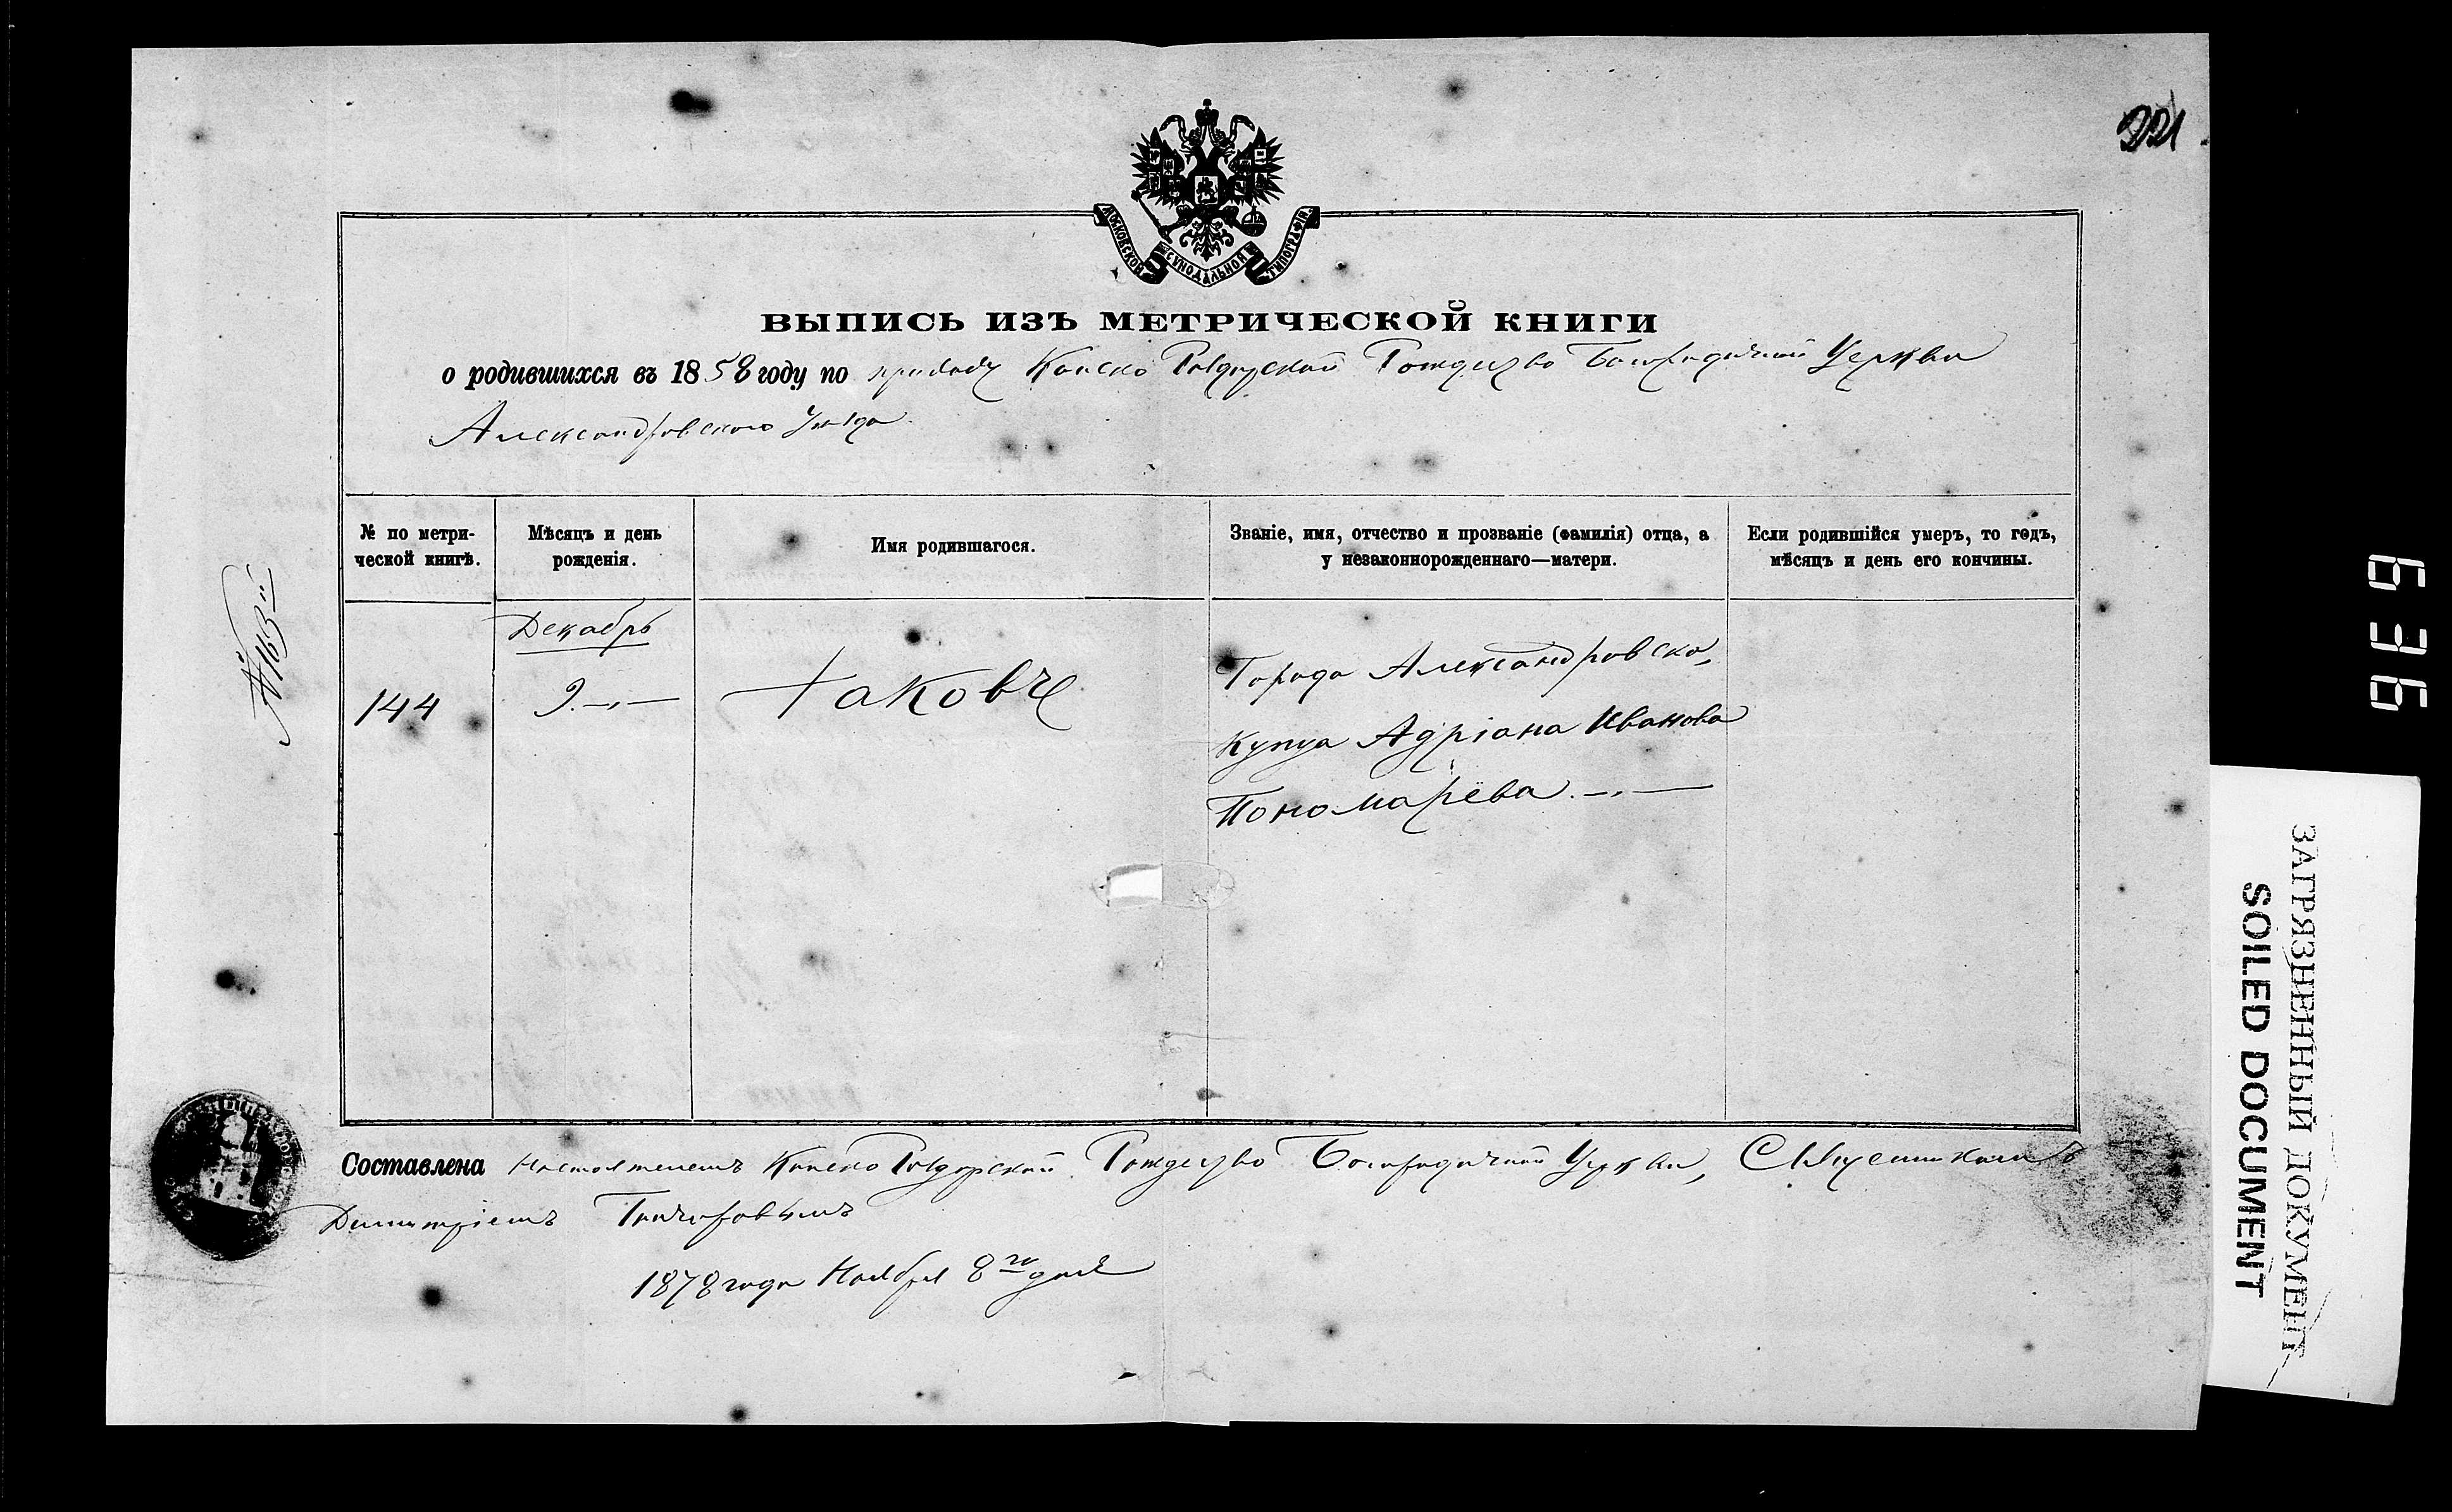 221
МОСКОВСКОЙ СѴНОДАЛЬНОЙ ТИПОГРАФІИ.
ВЫПИСЬ ИЗЪ МЕТРИЧЕСКОЙ КНИГИ
о родившихся въ 1858 году по приходу Конско Раздорской Рождество Богородичной Церкви
Александровского Уѣзда.
№ по метри-
ческой книгѣ.
Мѣсяцъ и день
рожденія.
Имя родившагося.
Званіе, имя, отчество и прозваніе (фамилія) отца, а
у незаконнорожденнаго—матери.
Если родившійся умеръ, то годъ,
мѣсяцъ и день его кончины.
Декабрь
144
9.
Іаковъ
Города Александровска,
Купца Адріана Иванова
Пономарёва.
Составлена Настоятелемъ Конско Раздорской Рождество Богородичной Церкви, Священникомъ
Димитріемъ
1878 года Ноября 8го дня
636
ЗАГРЯЗНЕННЫЙ ДОКУМЕНТ
SOILED DOCUMENT